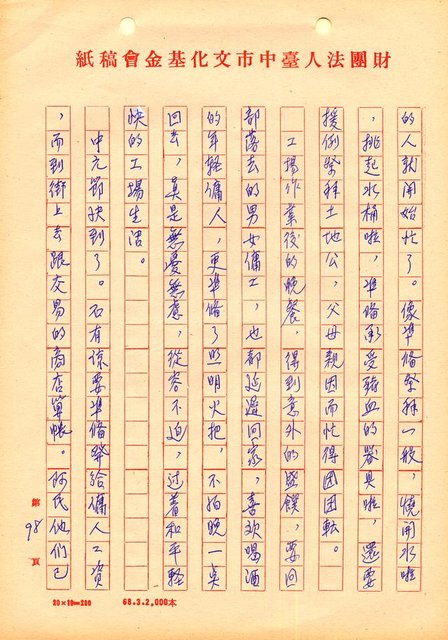 財團法人臺中市文化基金會稿紙
的人就開始忙了。像準備祭拜一般，燒開水啦
，挑起水桶啦，準備承受豬血的器具啦，還要
援例祭拜土地公，父母親因而忙得團團轉。
工場作業後的晚餐，得到意外的盛饌，要回
部落去的男女傭工，也都延遲回家，喜歡喝酒
的年輕傭人，更準備了照明火把，不怕晚一點
回去，真是無憂無慮，從容不迫，過着和平輕
快的工場生活。
中元節快到了。石有諒要準備發給傭人工資
，而到街上去跟交易的商店算帳。阿民他們已
第98頁
20×10=200
68.3.2,000本